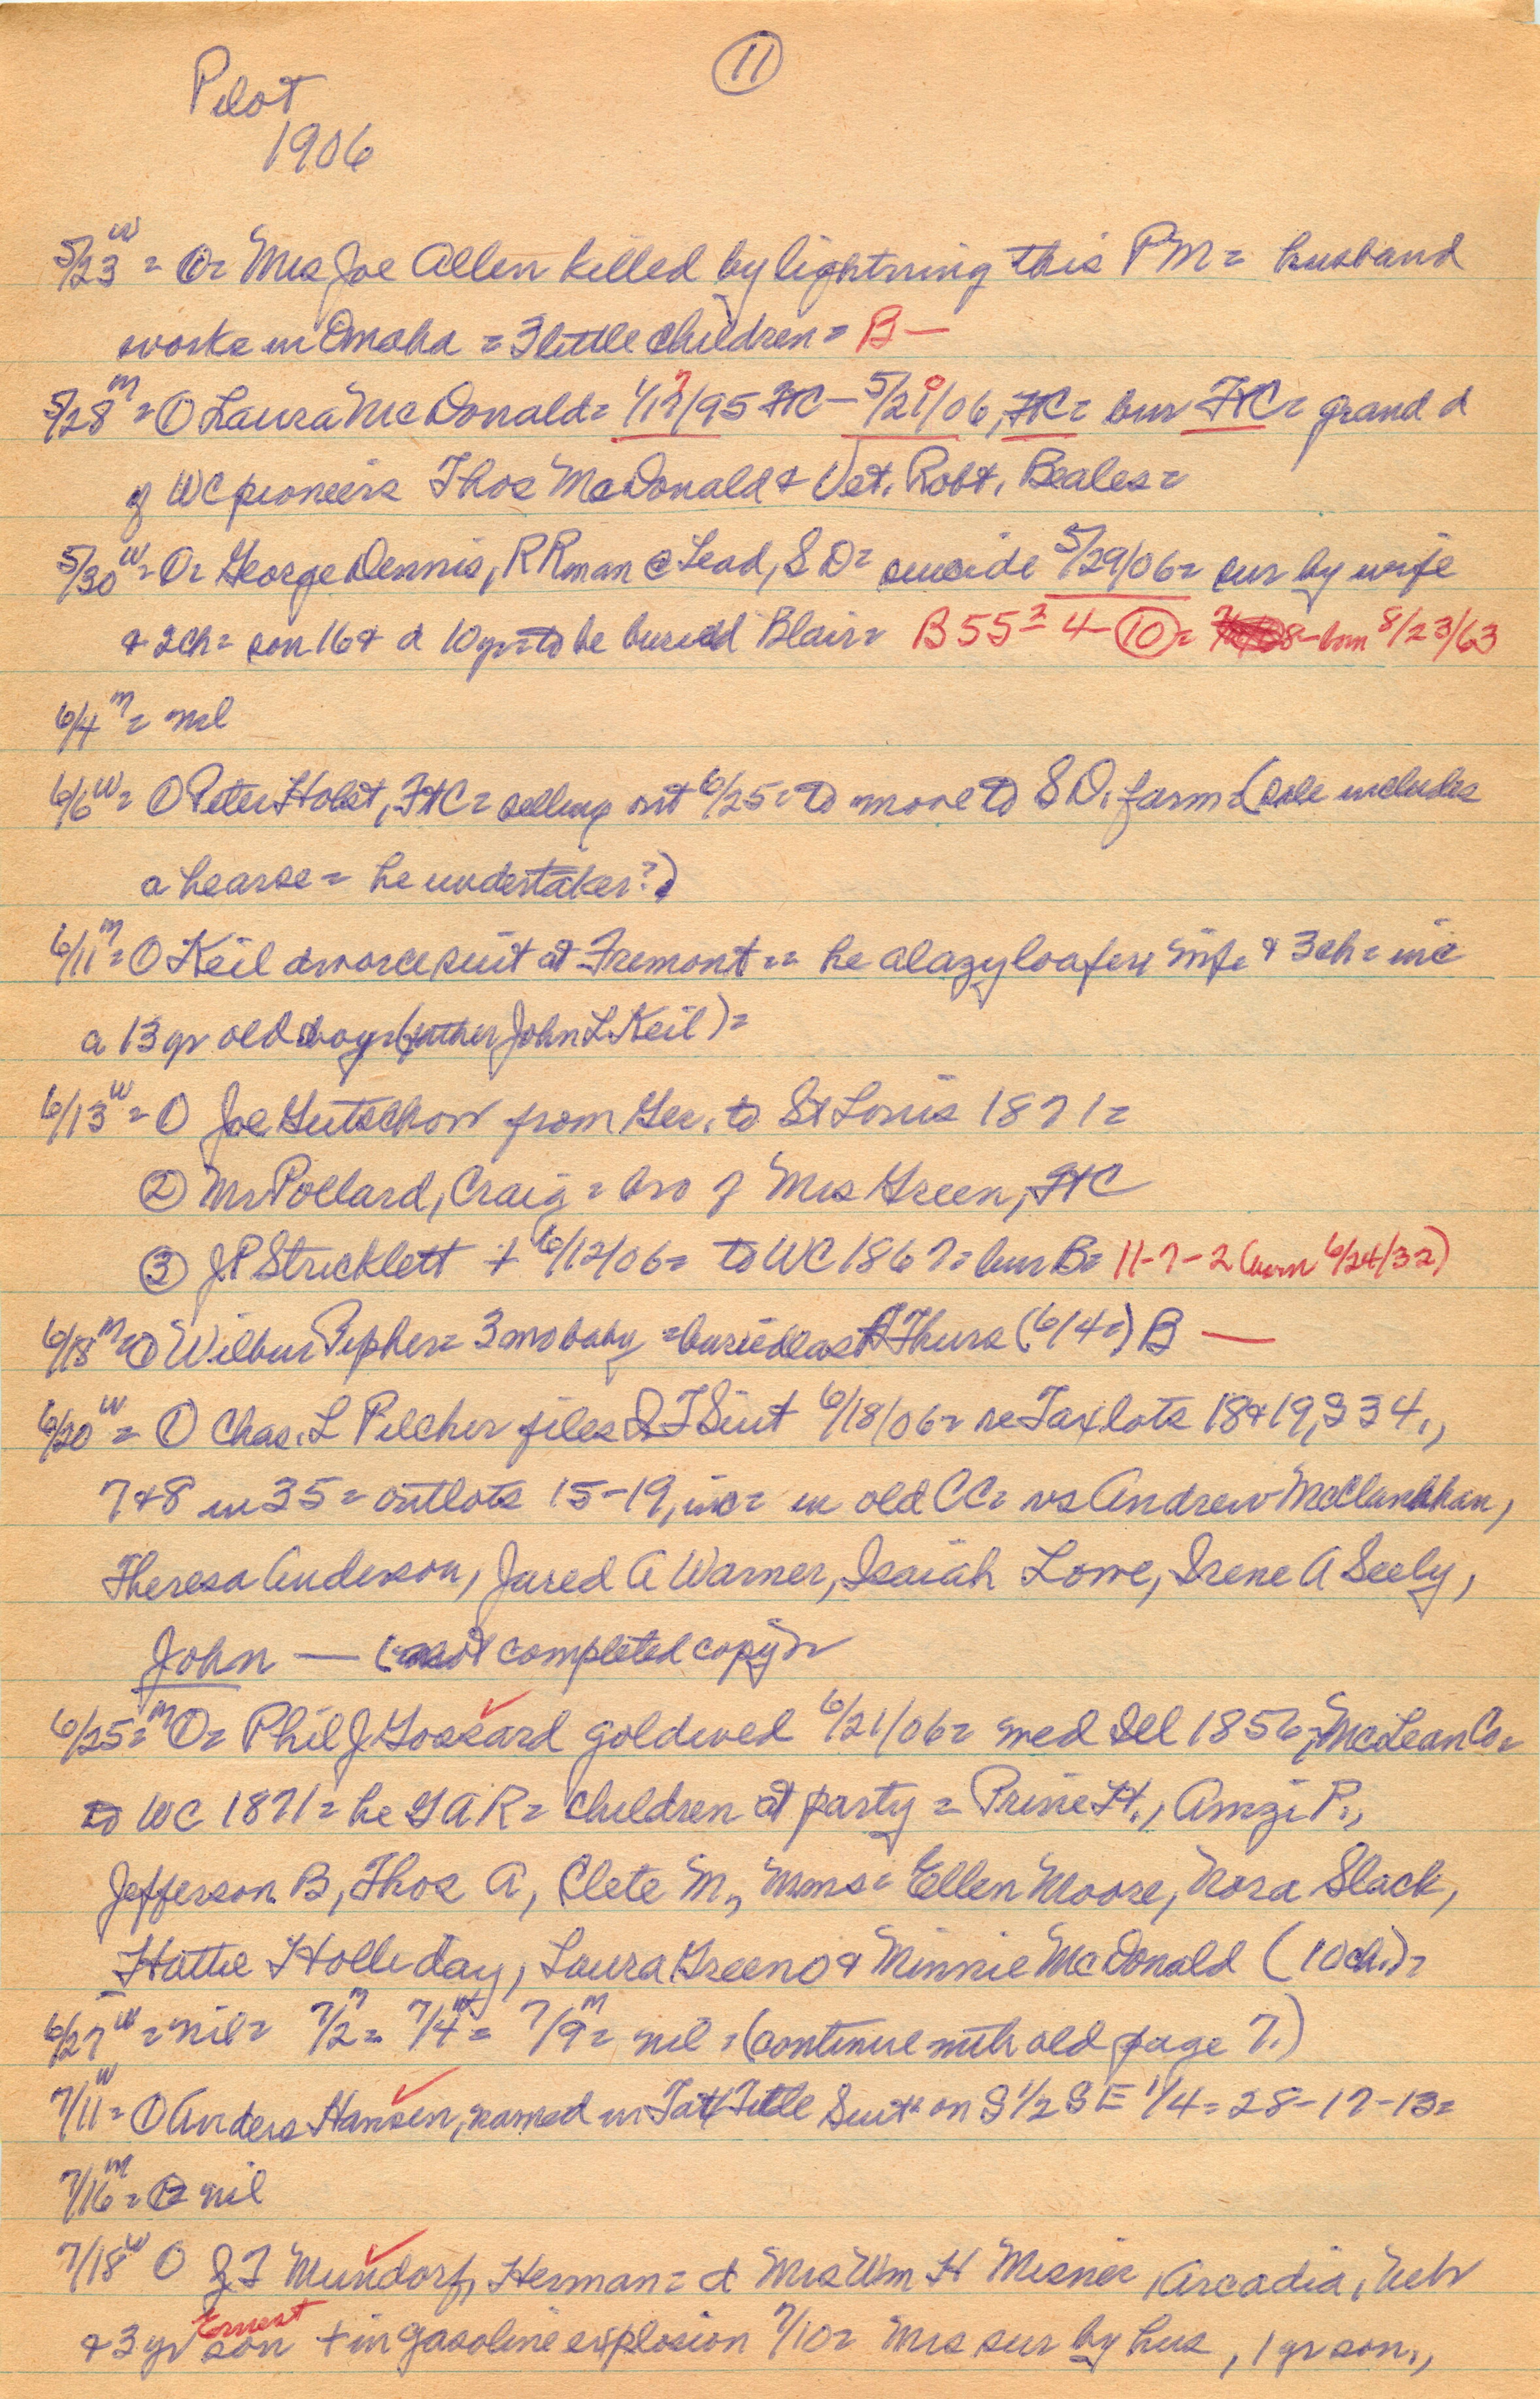 11
Pilot
1906
5/23 W = ① = Mrs Joe Allen killed by lightning this PM = husband
works in Omaha = 3 little children = B —
5/28 M = ① Laura McDonald = 1/17/95 FtC — 5/20/06, FtC = bur FtC = grand d
of WC pioneers Thos McDonald & Vet. Robt. Beales =
5/30 W = ① = George Dennis, RR man @ Lead, S D = suicide 5/29/06 = sur by wife
& 2 ch = son 16 & d 10 yr = to be buried Blair = B 55 = 4 - ⑩ = born 8/23/63
6/4 M = nil
6/6 W = ① Peter Holst, FtC = selling out 6/25 = to move to S D. farm = (sale includes
a hearse = he undertaker?)
6/11 M = ① Keil divorce suit at Fremont = = he a lazy loafer = wife & 3 ch = inc
a 13 yr old boy = (father John L Keil) =
6/13 W = ① Joe Gutschow from Ger. to St Louis 1871 =
② Mr Pollard, Craig = bro of Mrs Green, FtC
③ J P Stricklett + 6/12/06 = to WC 1867 = bur B = 11-7-2 (born 6/24/32)
6/18 M = ① Wilbur Pepher = 3 mo baby = buried last Thurs (6/14 =) B —
6/20 W = ① Chas. L Pilcher files Q T Suit 6/18/06 = re Tax lots 18 & 19, S 34.,
7 & 8 in 35 = outlots 15-19, inc = in old CC = vs Andrew McClanahan,
Theresa Anderson, Jared A Warner, Isaiah Lowe, Irene A Seely,
John — (not completed copy) =
6/25 = M ① = Phil J Gossard gold wed 6/21/06 = wed Ill 1856, McLean Co =
to WC 1871 = he G A R = children at party = Prine H., Amzi P.,
Jefferson B, Thos A, Clete M., Mms = Ellen Moore, Nora Slack,
Hattie Holliday, Laura Greeno & Minnie McDonald (10 ch.) =
6/27 W = nil = 7/2 M = 7/4 W = 7/9 M = nil = (continue with old page 7.)
7/11 W = ① Anders Hansen, named in Tax Title Suit on S 1/2 S E 1/4 = 28-17-13 =
7/16 M = ① = nil
7/18 W ① J T Mundorf, Herman = d Mrs Wm H Misner, Arcadia, Neb
& 3 yr Ernest son + in gasoline explosion 7/10 = Mrs sur by hus, 1 yr son.,